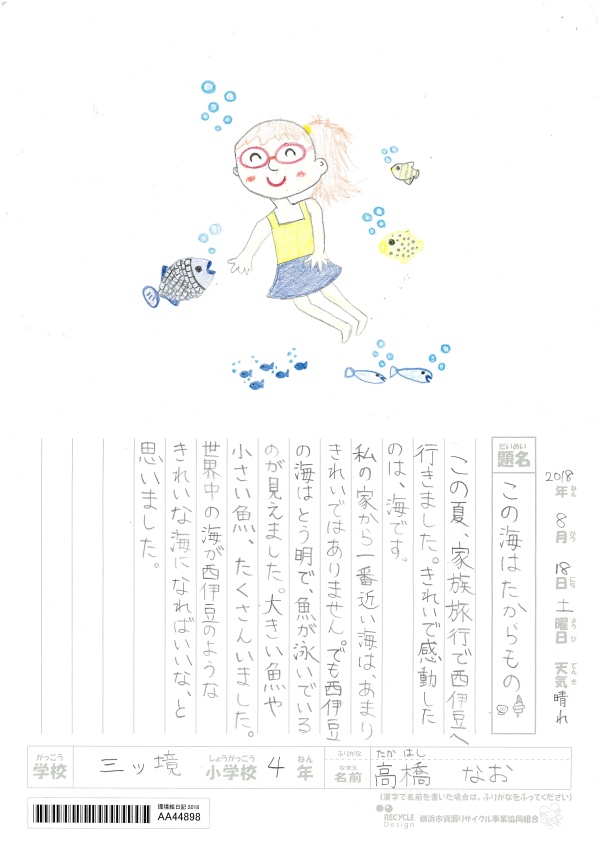 2018年 8月 18日 土曜日 天気 晴れ
ねん がつ にち ようび てんき
だいめい
題名
この海はたからもの
この夏、家族旅行で西伊豆へ
行きました。きれいで感動した
のは、海です。
私の家から一番近い海は、あまり
きれいではありません。でも西伊豆
の海はとう明で、魚が泳いでいる
のが見えました。大きい魚や
小さい魚、たくさんいました。
世界中の海が西伊豆のような
きれいな海になればいいな、と
思いました。
がっこう しょうがっこう ねん
学校 三ッ境 小学校 4年
ふりがな たか はし
なまえ
名前 高橋 なお
(漢字で名前を書いた場合は、ふりがなをふってください)
環境絵日記2018
AA44898
RECYCLE Design 横浜市資源リサイクル事業協同組合